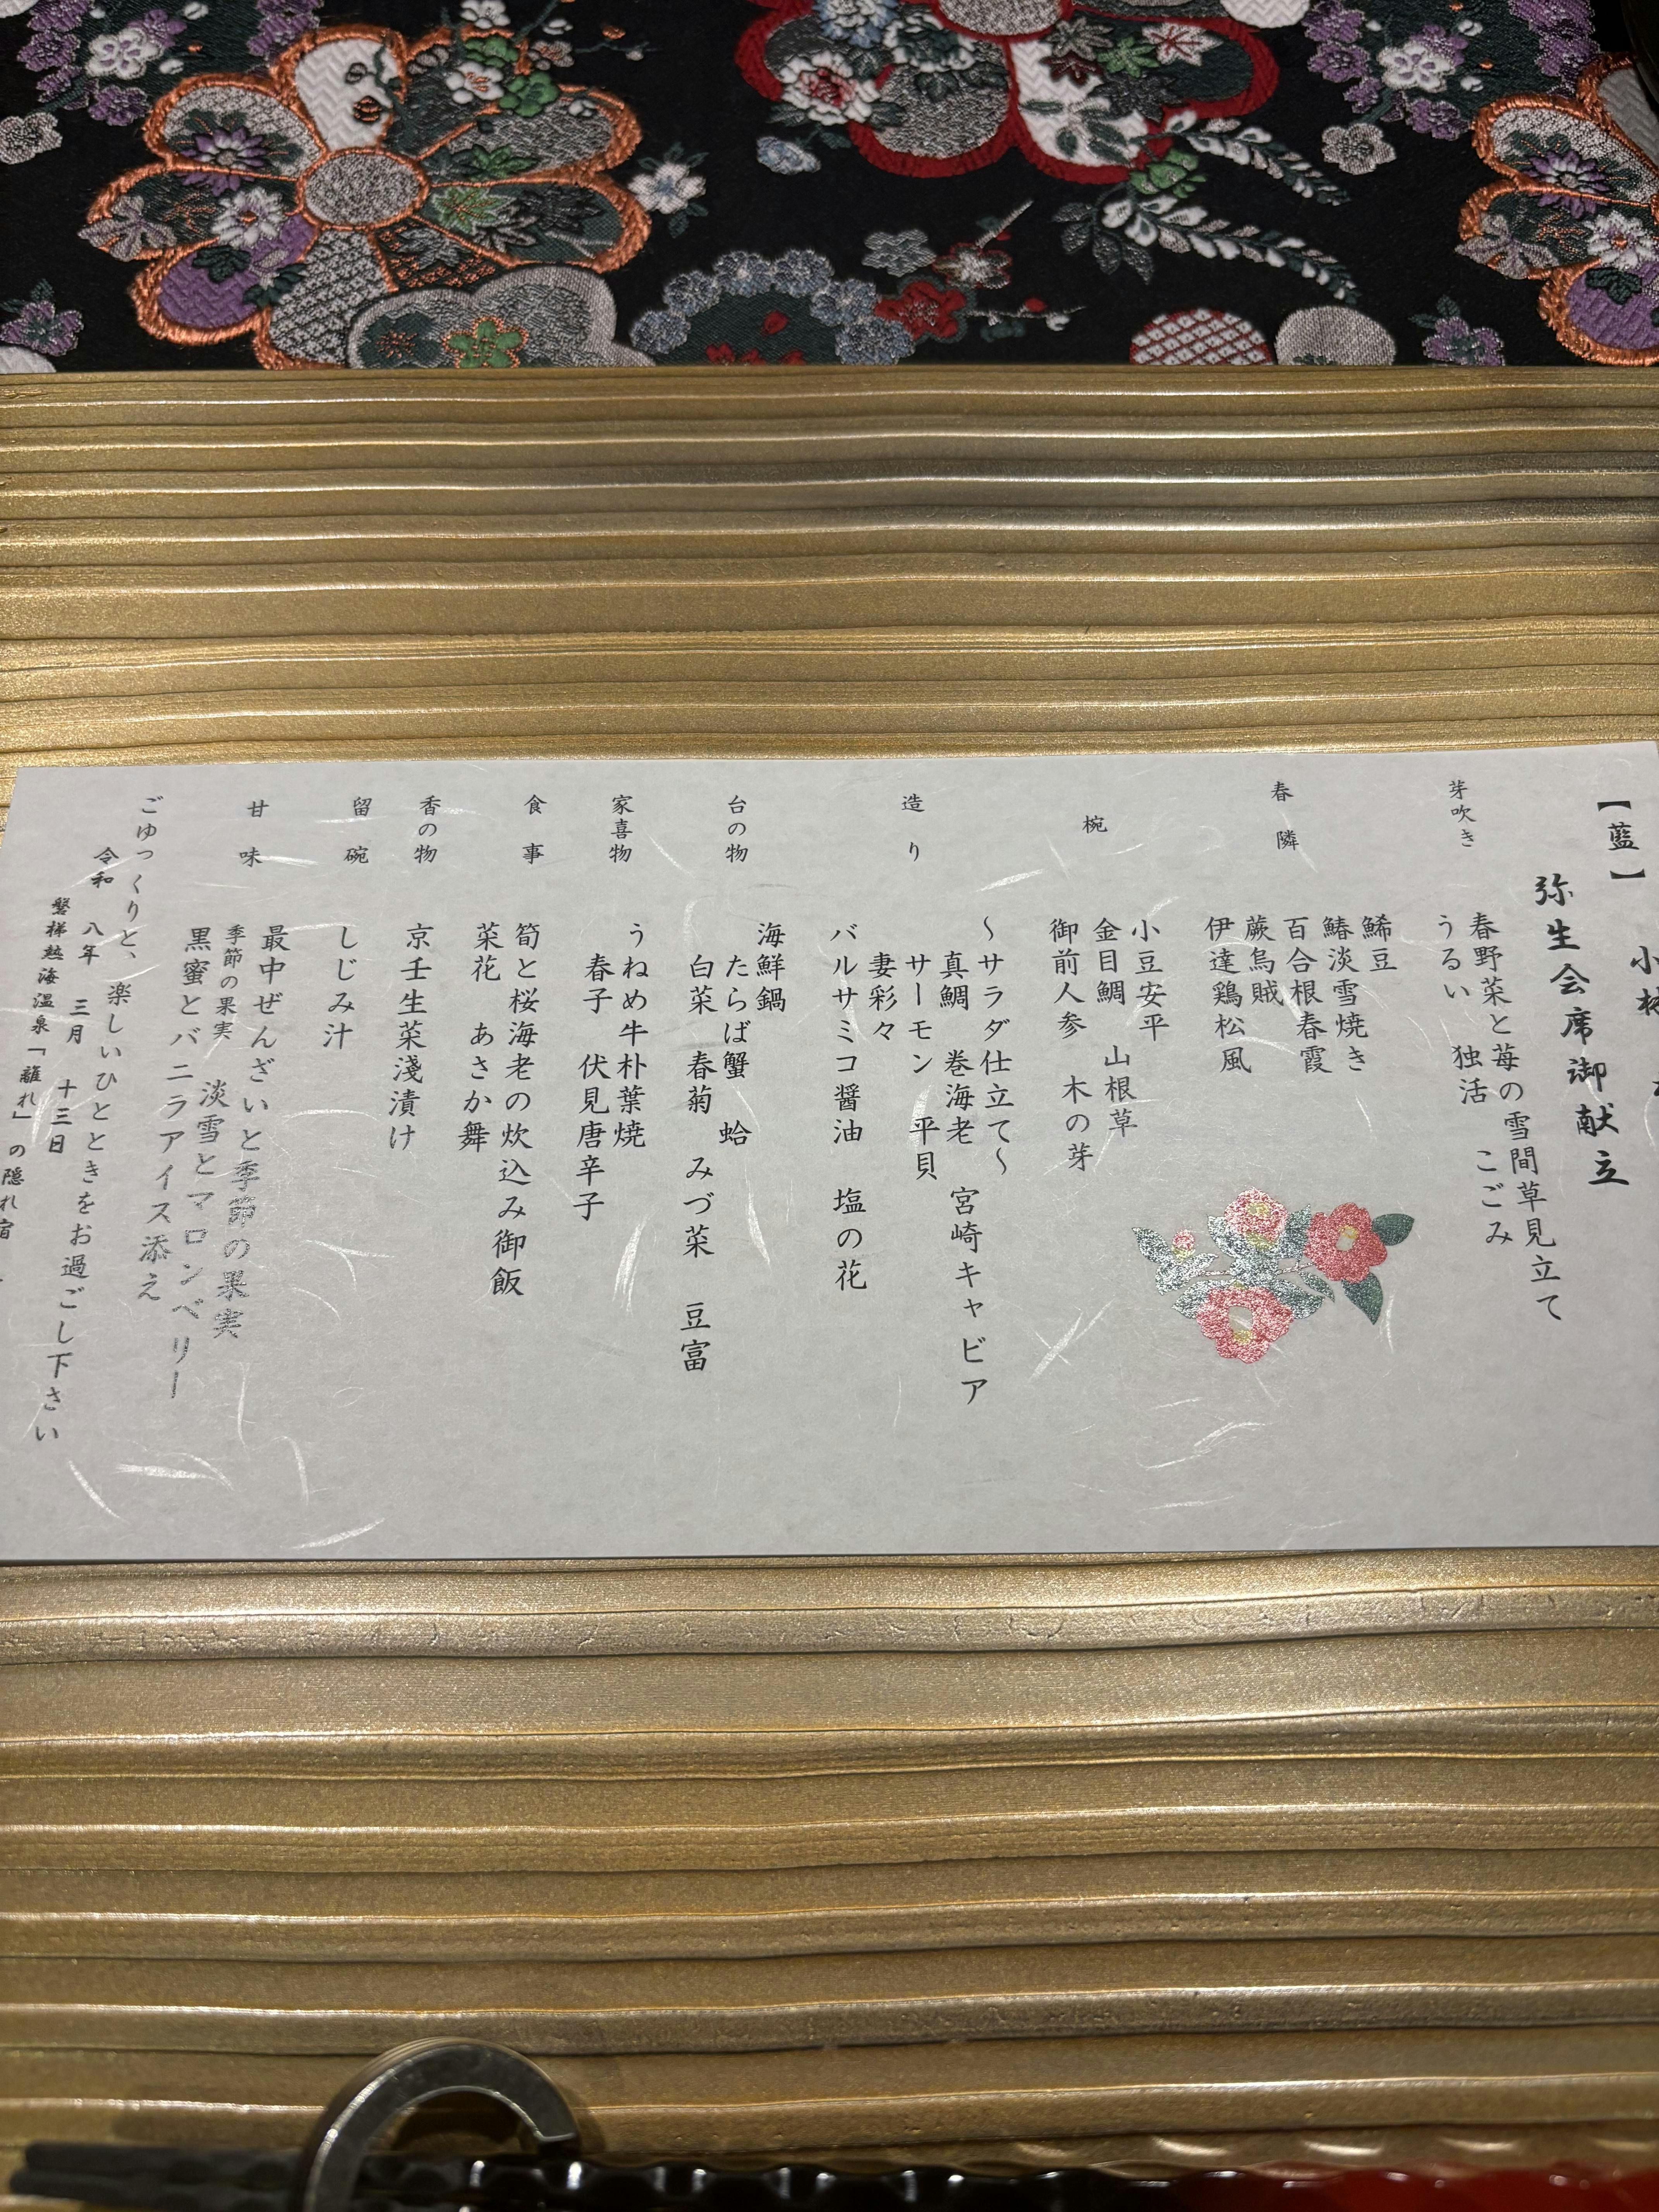 【藍】
弥生会席御献立
芽吹き
春野菜と苺の雪間草見立て
うるい 独活 こごみ
春隣
鯑豆
鰆淡雪焼き
百合根春霞
蕨烏賊
伊達鶏松風
椀
小豆安平
金目鯛 山根草
御前人参 木の芽
造り
～サラダ仕立て～
真鯛 巻海老 宮崎キャビア
サーモン 平貝
妻彩々
バルサミコ醤油 塩の花
台の物
海鮮鍋
たらば蟹 蛤
白菜 春菊 みづ菜 豆富
家喜物
うねめ牛朴葉焼
春子 伏見唐辛子
食事
筍と桜海老の炊込み御飯
菜花 あさか舞
香の物
京壬生菜淺漬け
留碗
しじみ汁
甘味
最中ぜんざいと季節の果実
季節の果実 淡雪とマロンベリー
黒蜜とバニラアイス添え
ごゆっくりと、楽しいひとときをお過ごし下さい
令和 八年 三月 十三日
磐梯熱海温泉「離れ」の隠れ宿